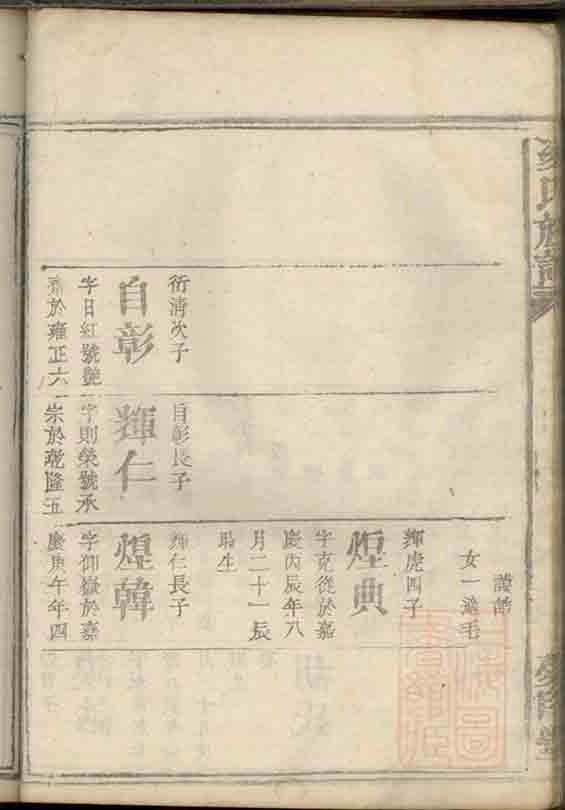 氏族譜
衍清次子
自彰
字日紅號艷
於雍正六
自彰長子
輝仁
字則榮號承
崇於乾隆五
女一適毛
輝虎四子
煌典
字克從於嘉
慶丙辰年八
月二十一辰
時生
輝仁長子
煌韓
字仰嶽於嘉
慶庚午年四